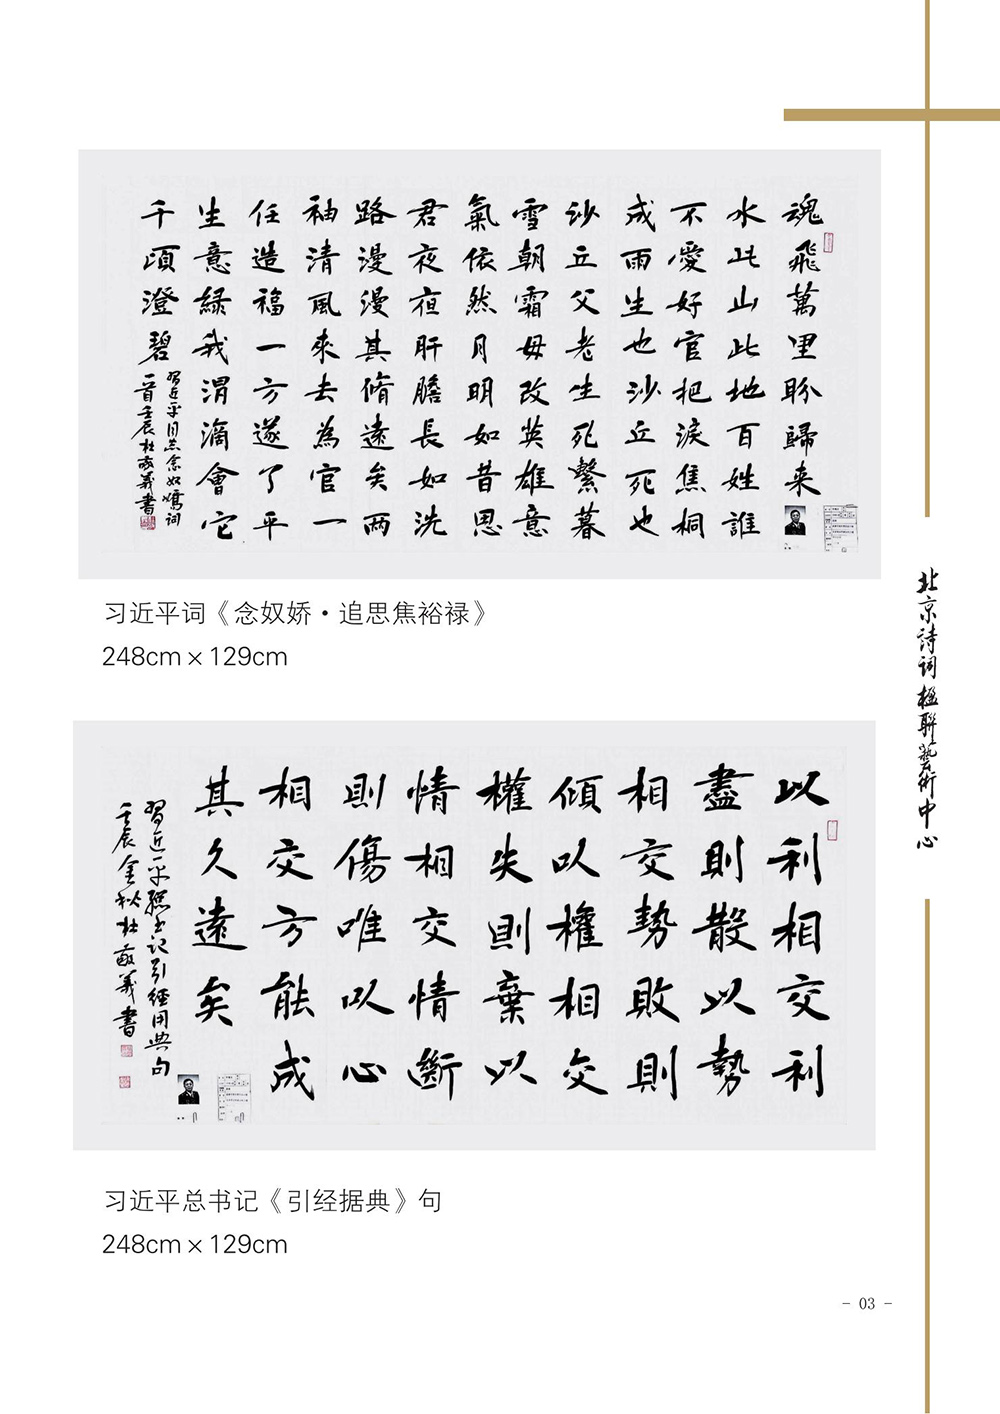 魂飛萬里盼歸来
水此山此地百姓誰
不愛好官把淚焦桐
成雨生也沙丘死也
沙丘父老生死繫暮
雪朝霜毋改英雄意
氣依然月明如昔思
君夜夜肝膽長如洗
路漫漫其脩遠矣两
袖清風來去為官一
任造福一方遂了平
生意綠我涓滴會它
千頃澄碧
習近平同志念奴嬌詞
一首壬辰杜敬義書
习近平词《念奴娇·追思焦裕禄》
248cm×129cm
以利相交利
盡則散以勢
相交勢敗則
傾以權相交
權失則棄以
情相交情斷
則傷唯以心
相交方能成
其久遠矣
習近平總书记引經用典句
壬辰金秋杜敬義書
习近平总书记《引经据典》句
248cm×129cm
北京詩词楹聯藝術中心
- 03 -